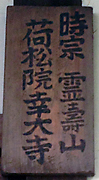 時宗 霊壽山
荷松院幸大寺